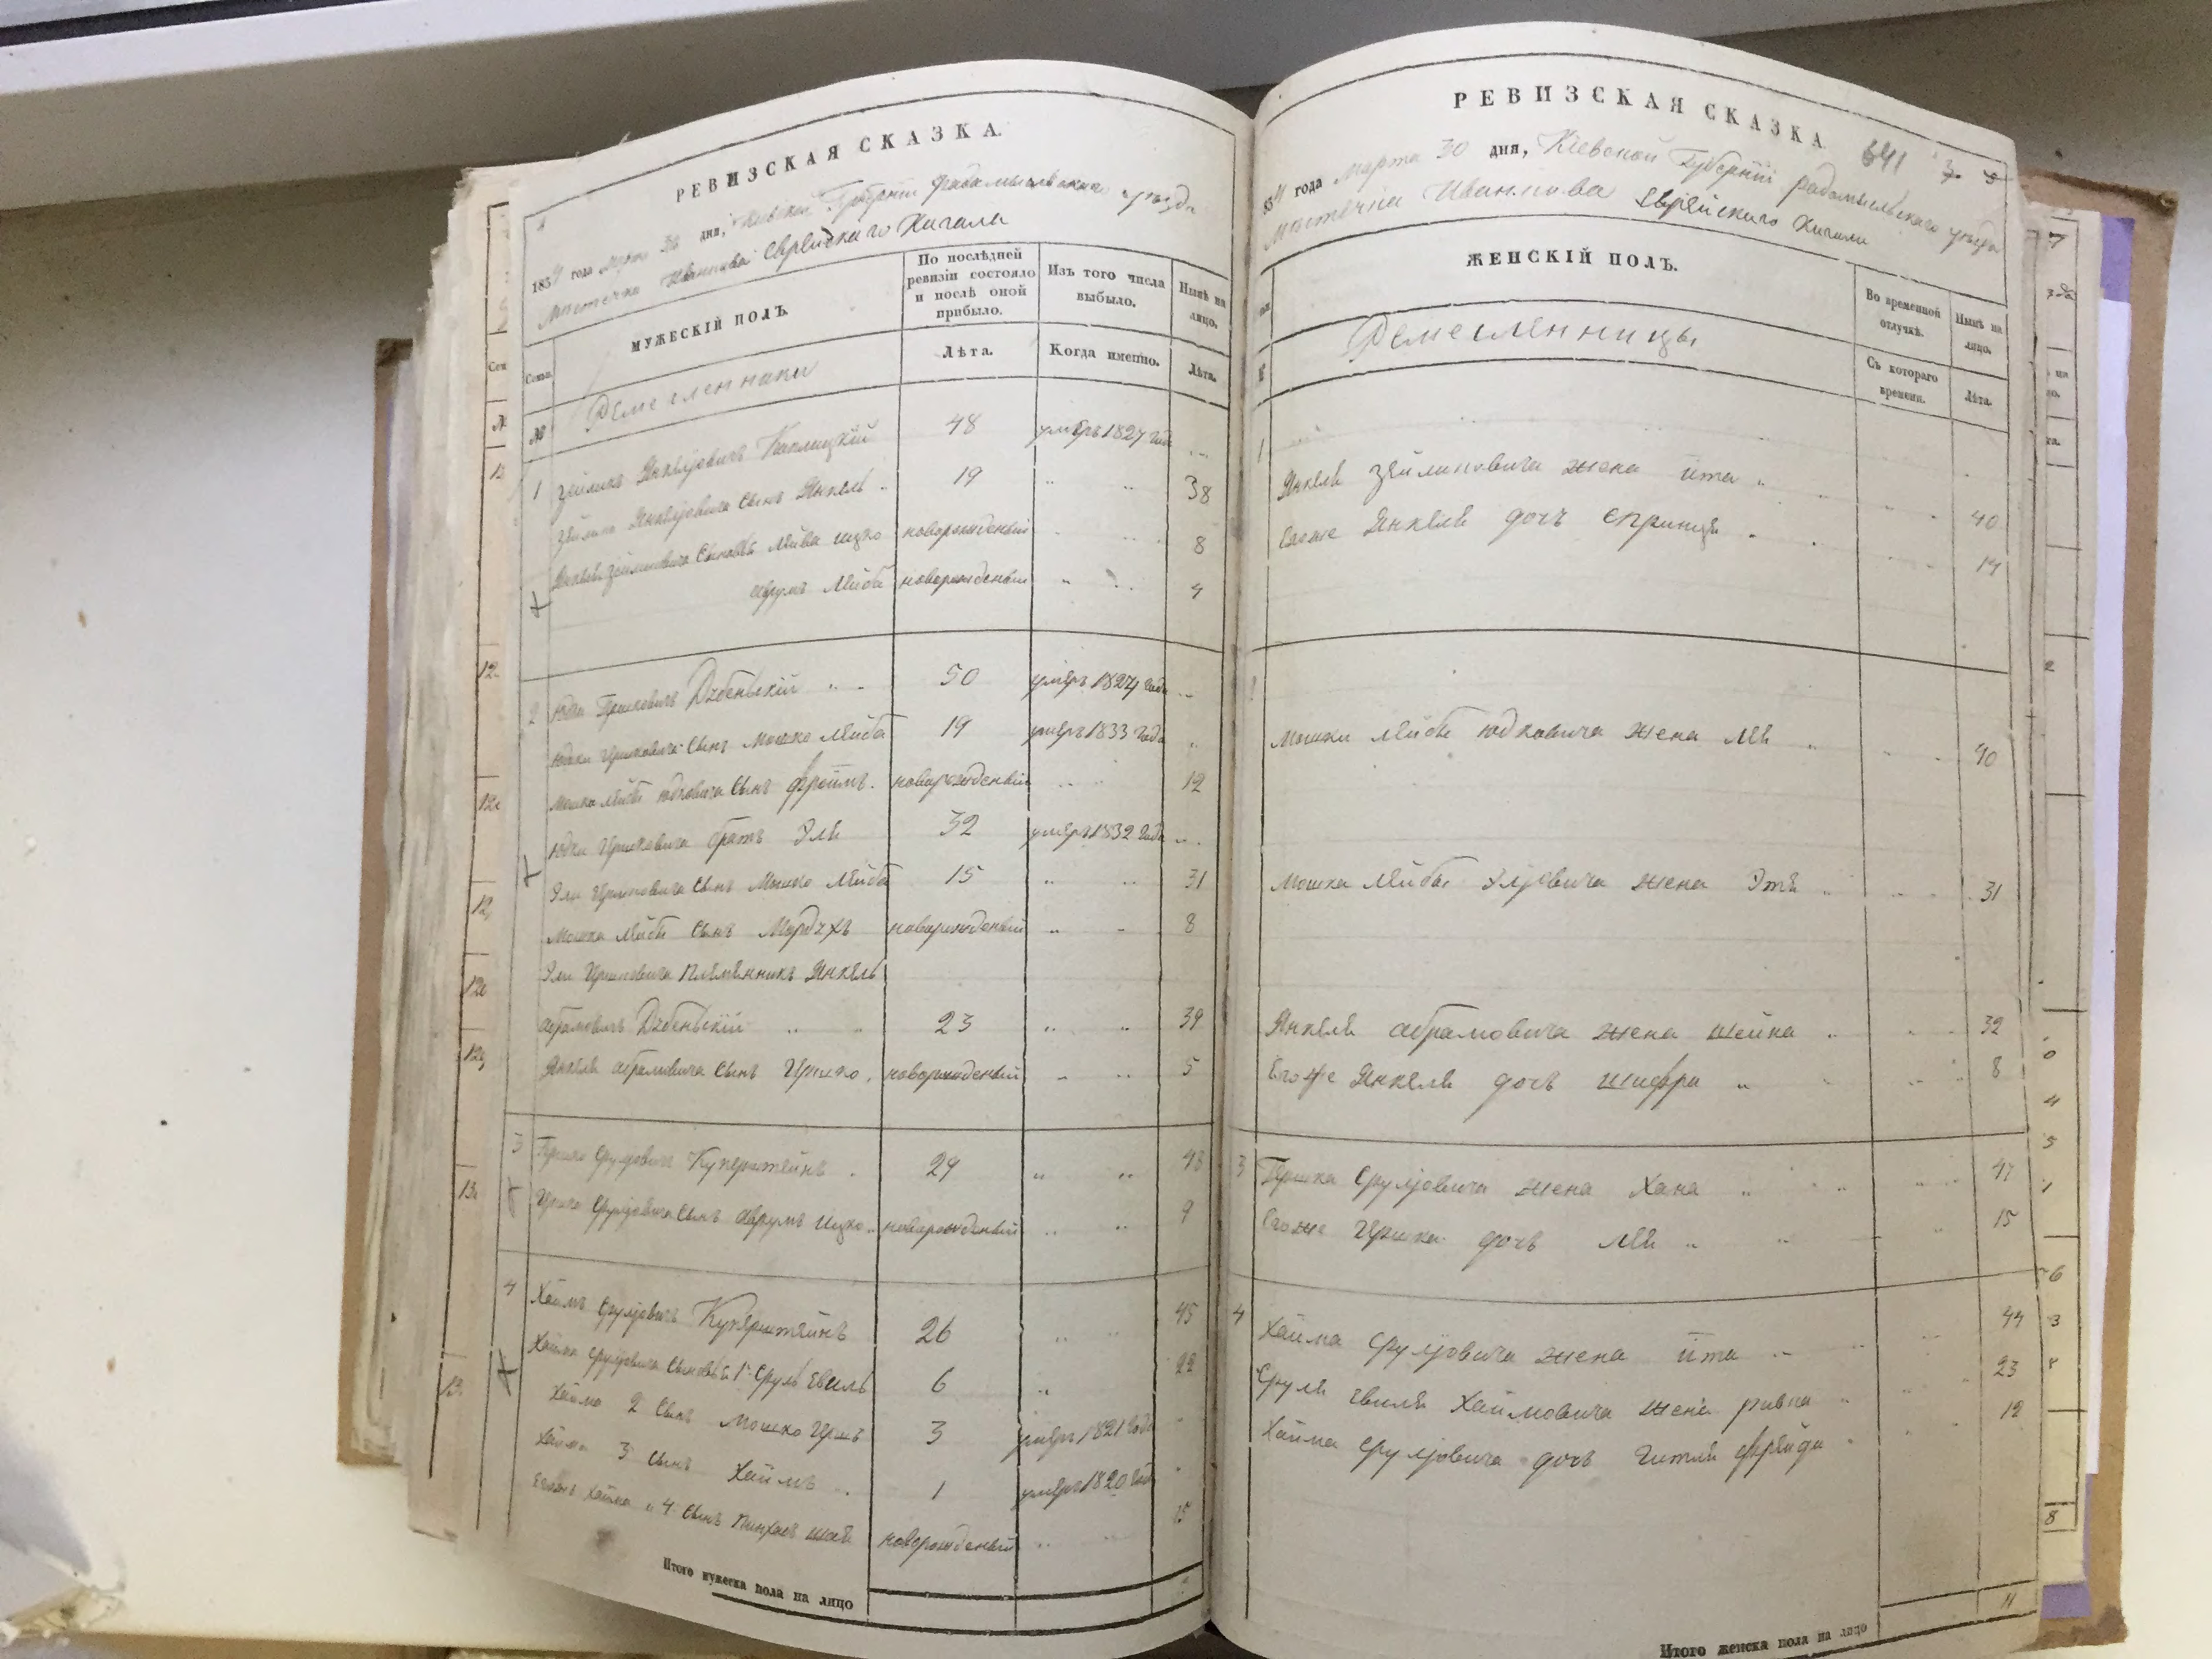 РЕВИЗСКАЯ СКАЗКА.
1834 года Марта 30 дня, Кіевской Губерніи Радомысльскаго уезда
Местечка Иванкова Еврейскаго Кагала
МУЖЕСКІЙ ПОЛЪ.
По послѣдней ревизіи состояло и послѣ оной прибыло.
Изъ того числа выбыло.
Нынѣ на лицо.
Семьи.
№
Лѣта.
Когда именно.
Лѣта.
Ремесленники
1 Зейликъ Янкеліовичъ 48 умеръ 1827 года
Зейлика Янкеліовича сынъ Янкель 19 38
Янкеля Зейликовича сыновья Лейба Ицко новорожденый 8
Аврумъ Лейба новорожденый 4
2 Юдка Гершковичъ 50 умеръ 1824 года
Юдки Гершковича сынъ Мошко Лейба 19 умеръ 1833 года
Мошка Лейбы Юдковича сынъ Фроимъ новорожденый 12
Юдки Гершковича братъ Эля 32 умеръ 1832 года
Эли Гершковича сынъ Мошко Лейба 15 31
Мошка Лейбы сынъ новорожденый 8
Эли Гершковича племянникъ Янкель
Абрамовичъ 23 39
Янкеля Абрамовича сынъ Гершко новорожденый 5
3 Гершко Сруліовичъ Куперштейнъ 29 43
Гершка Сруліовича сынъ Аврумъ Ицко новорожденый 9
4 Хаимъ Сруліовичъ Куперштейнъ 26 45
Хаима Сруліовича сыновья 1й Сруль 6 22
Хаима 2 сынъ Мошко Гершъ 3 умеръ 1821 года
Хаима 3 сынъ Хаимъ 1 умеръ 1820 года
Хаима 4 сынъ Пинхасъ новорожденый 15
Итого мужеска пола на лицо
РЕВИЗСКАЯ СКАЗКА
641
1834 года Марта 30 дня, Кіевской Губерніи Радомысльскаго уезда
Местечка Иванкова Еврейскаго Кагала
ЖЕНСКІЙ ПОЛЪ.
Во временной отлучкѣ.
Нынѣ на лицо.
Съ котораго времени.
Лѣта.
Ремесленницы
1
Янкеля Зейликовича жена Ита 40
Егоже Янкеля дочь Спринця 14
Мошки Лейбы Юдковича жена Лея 40
Мошка Лейбы Эліовича жена Этя 31
Янкеля Абрамовича жена Шейна 32
Егоже Янкеля дочь Шифра 8
3 Гершка Сруліовича жена Хана 47
Егоже Гершка дочь Лея 15
4 Хаима Сруліовича жена Ита 44
Сруля Хаимовича жена Ривка 23
Хаима Сруліовича дочь Гитля Фрейда 12
Итого женска пола на лицо 11